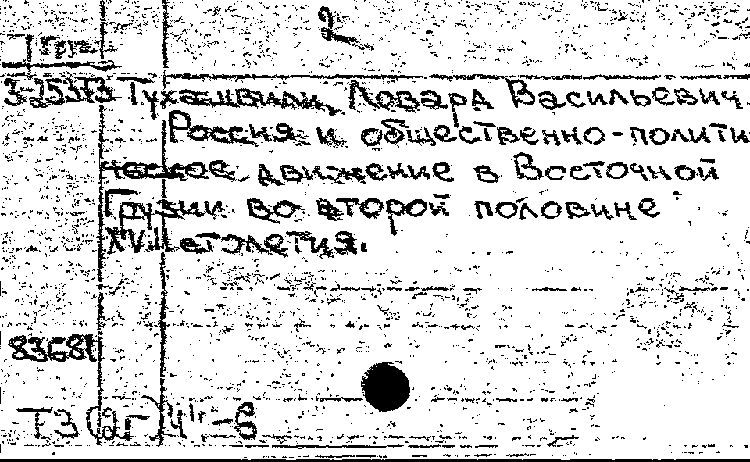 2
1 Груз.
3-25373 Тухашвили, Ловард Васильевич.
Россия и общественно-полити
ческое движение в Восточной
Грузии во второй половине
XVIII столетия.
83681
Т3(2Г)41г-6